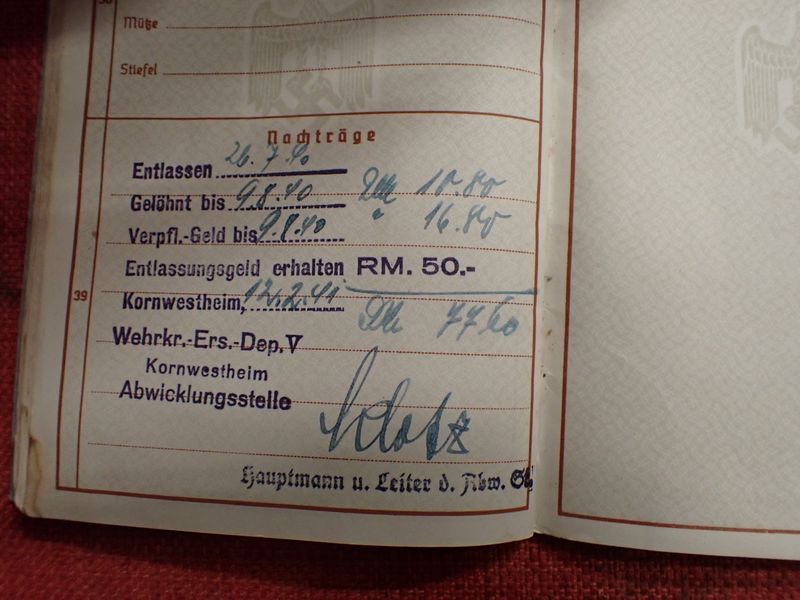 Mütze
Stiefel
Nachträge
Entlassen 26.7.40
Gelöhnt bis 9.8.40 RM 10.80
Verpfl.-Geld bis 9.8.40 " 16.80
Entlassungsgeld erhalten RM. 50.-
39
Kornwestheim, 12.2.41 RM 77.60
Wehrkr.-Ers.-Dep. V
Kornwestheim
Abwicklungsstelle
Klotz
Hauptmann u. Leiter d. Abw. St.